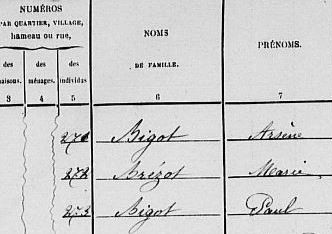 NUMÉROS
PAR QUARTIER, VILLAGE,
hameau ou rue,
NOMS
DE FAMILLE.
PRÉNOMS.
des maisons.
des ménages.
des individus
3 4 5 6 7
271 Bigot Arsène
272 Brézot Marie
273 Bigot Paul